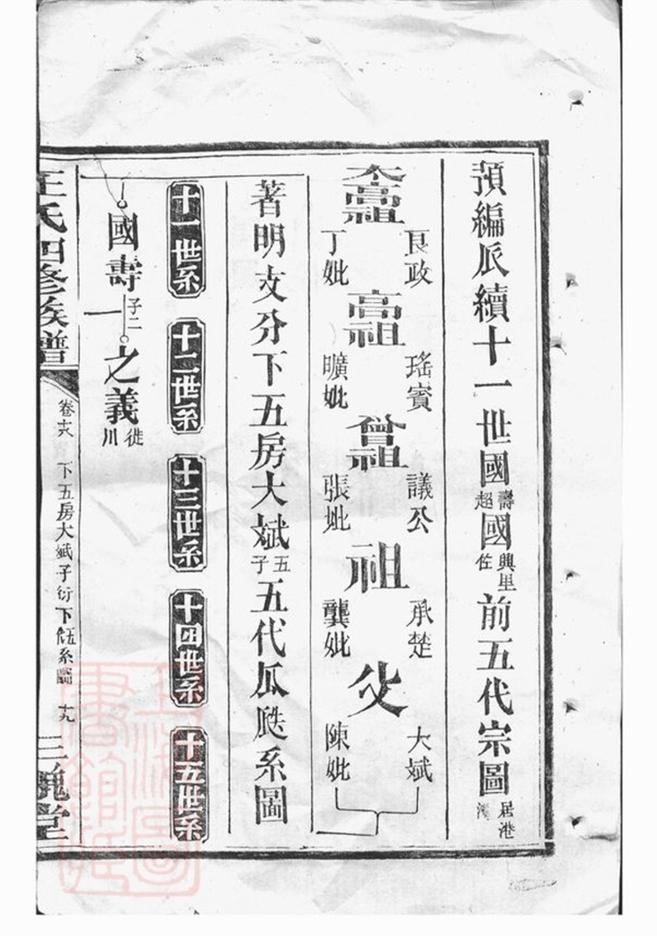 預編派續十一世國壽超國興里佐前五代宗圖居港
太高祖 良政 丁妣
高祖 瑤賓 曠妣
曾祖 議公 張妣
祖 承楚 龔妣
父 大斌 陳妣
著明支分下五房大斌五子五代瓜瓞系圖
十一世系 十二世系 十三世系 十四世系 十五世系
國壽子二 之義徙川
王氏四修族譜 下五房大斌子衍下 系圖 十九 三槐堂